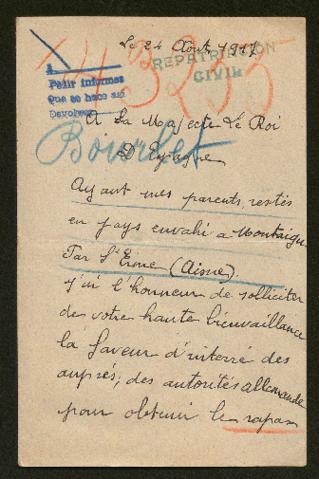 Le 24 Aout 1917
REPATRIACION
CIVIL
1.
Pedir informes
Que se haga así
Devolver
Bourlet
A La Majeste Le Roi
D'Espagne
Ayant mes parents restés
en pays envahi a Montaigu
Par St Erme (Aisne).
j'ai l'honneur de solliciter
de votre haute bienvaillance
la faveur d'interré des
auprés, des autorités allemande
pour obtenir le rapa